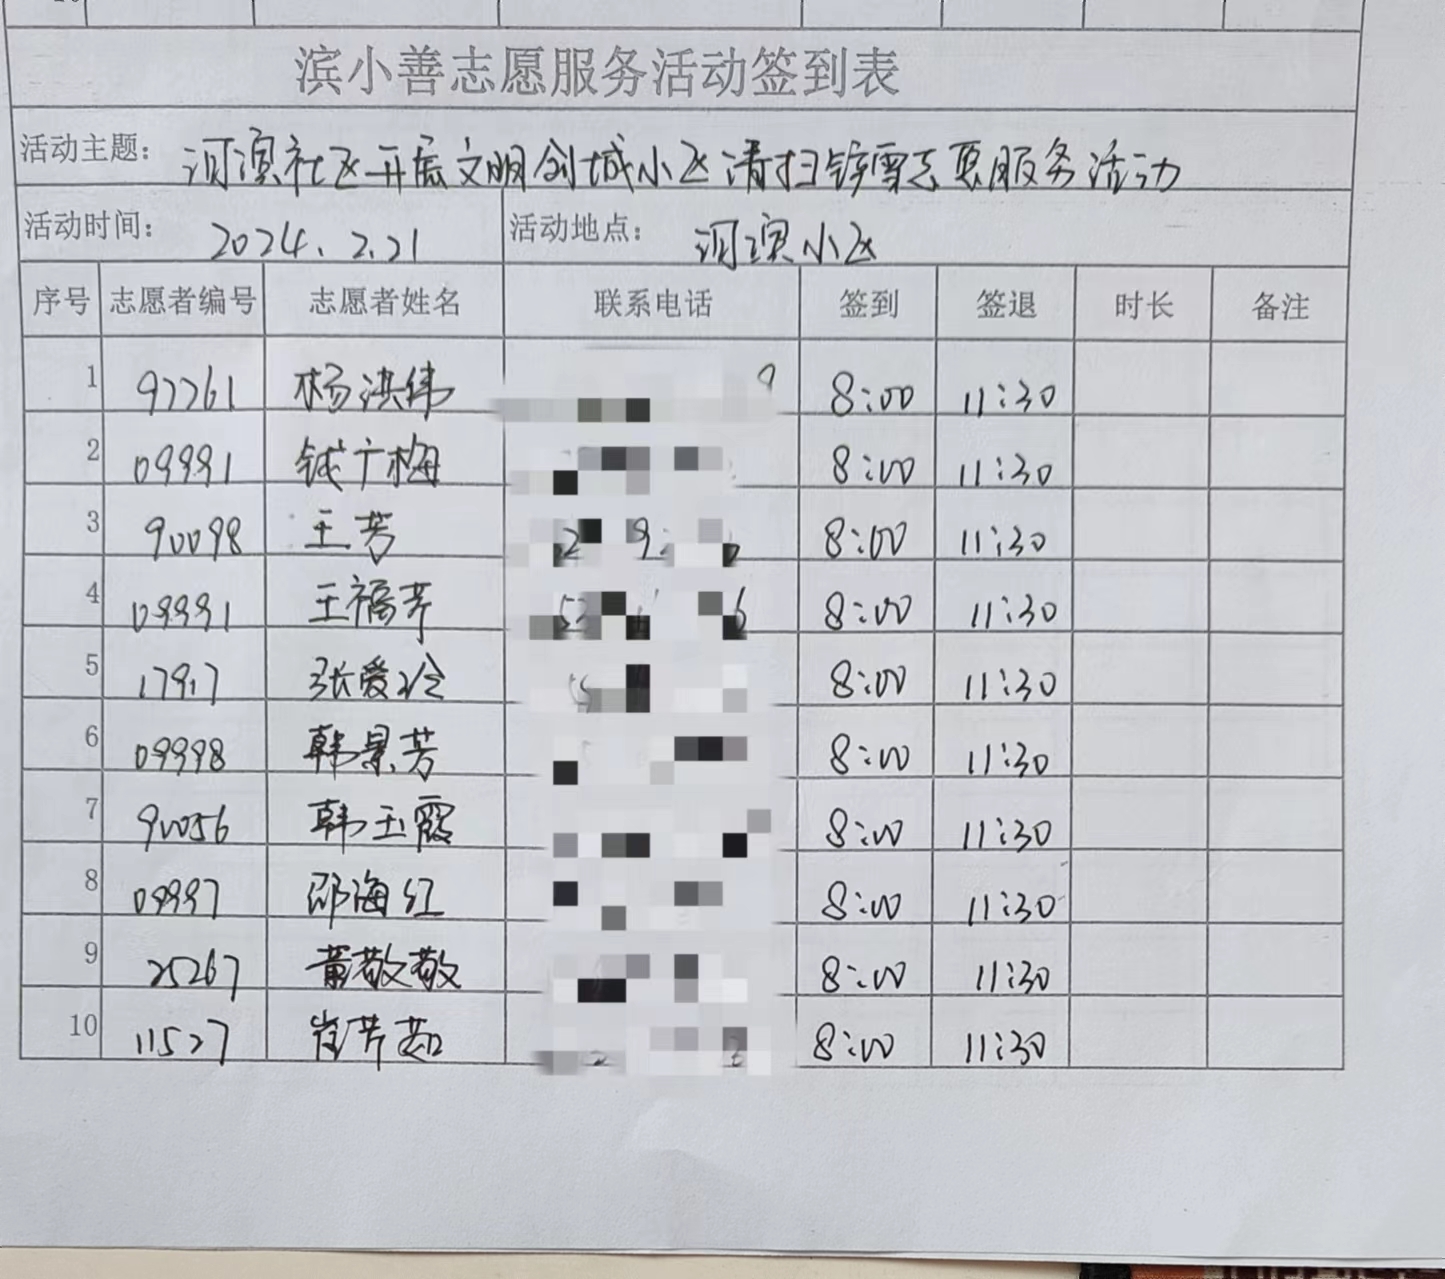 滨小善志愿服务活动签到表
活动主题： 河滨社区开展文明创城小区清扫铲雪志愿服务活动
活动时间： 2024.2.21 活动地点： 河滨小区
序号 志愿者编号 志愿者姓名 联系电话 签到 签退 时长 备注
1 97761 杨洪伟 9 8:00 11:30
2 09991 钱广梅 8:00 11:30
3 90098 王芳 2 9 8:00 11:30
4 09991 王福芹 6 8:00 11:30
5 17917 张爱玲 8:00 11:30
6 09998 韩景芳 8:00 11:30
7 90056 韩玉霞 8:00 11:30
8 09997 邵海红 8:00 11:30
9 25267 黄敬敬 8:00 11:30
10 11527 芹茹 8:00 11:30